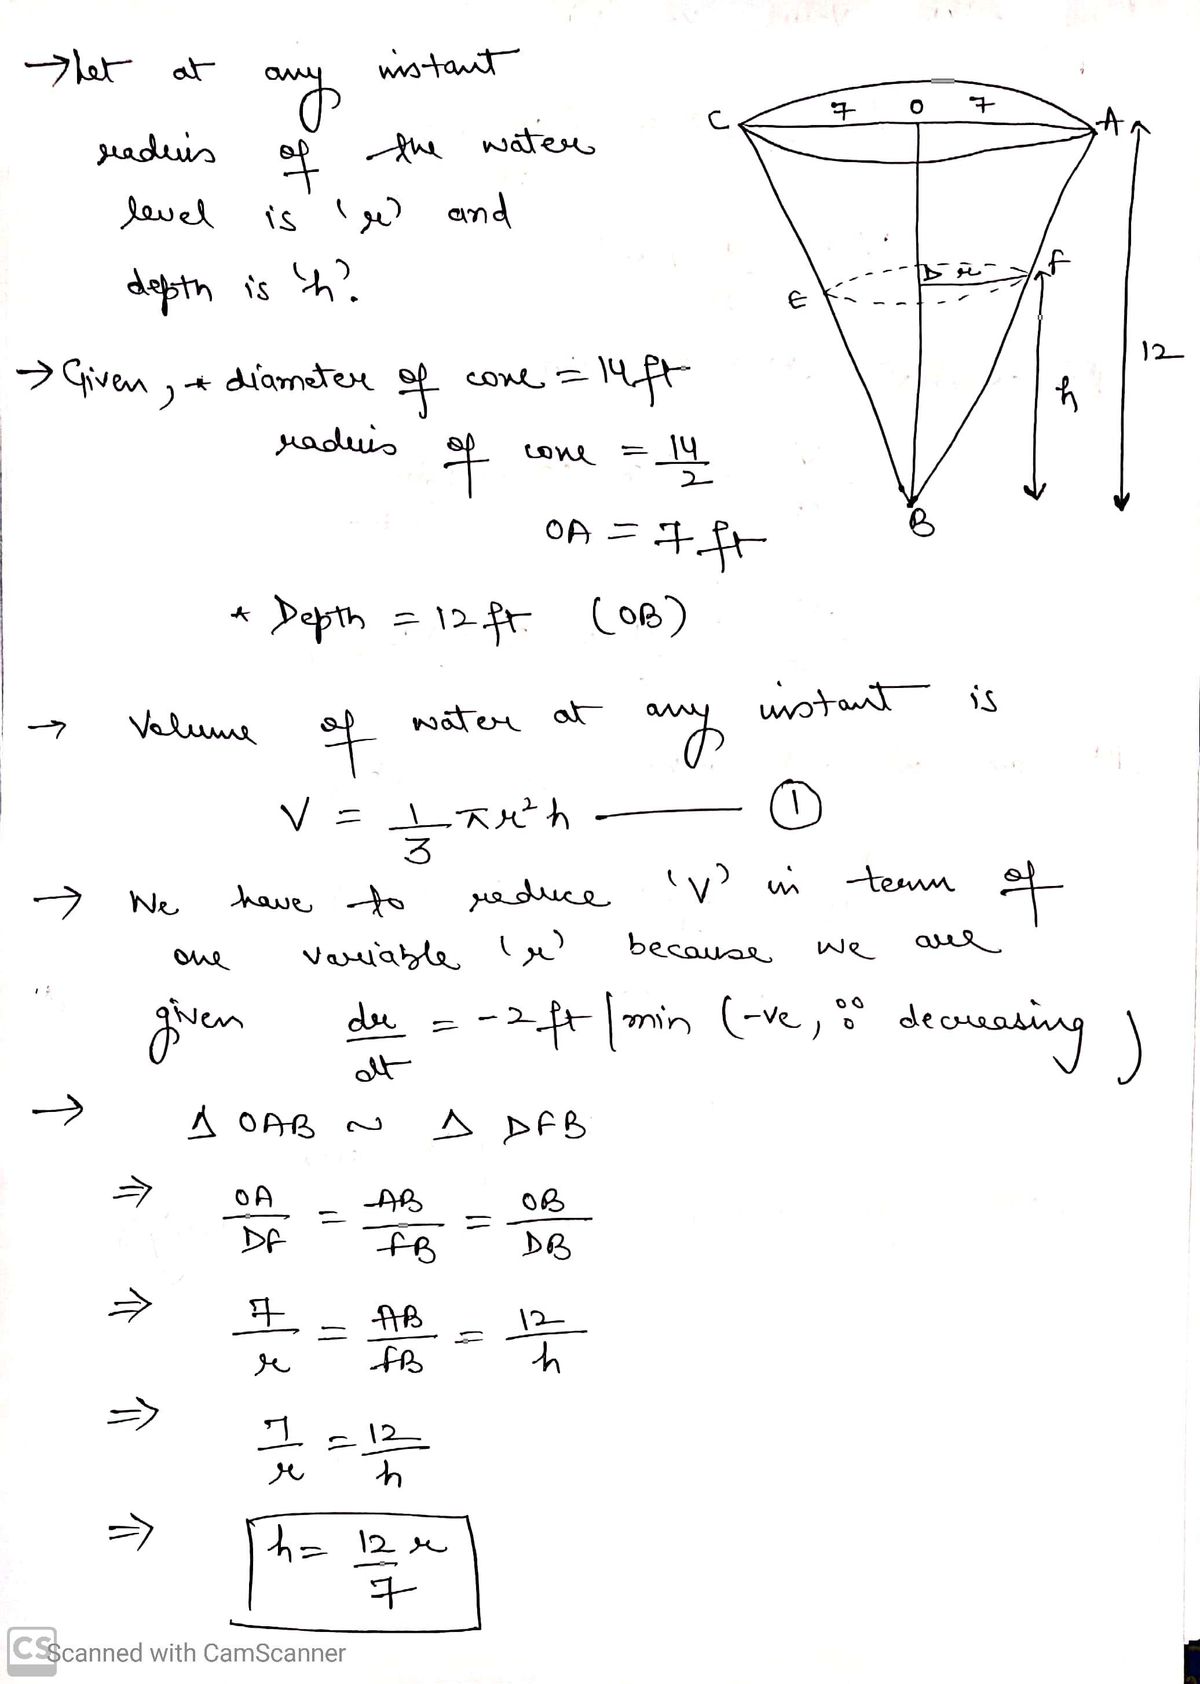 → Let at any instant
radius of the water
level is 'r' and
depth is 'h'.
C 7 O 7 A
E D r F
h 12
B
→ Given, * diameter of cone = 14 ft
radius of cone = 14/2
OA = 7 ft
* Depth = 12 ft. (OB)
→ Volume of water at any instant is
V = 1/3 πr²h —— ①
→ We have to reduce 'V' in term of
one variable 'r' because we are
given dr/dt = -2 ft/min (-ve, ∵ decreasing)
→ Δ OAB ~ Δ DFB
⇒ OA/DF = AB/FB = OB/DB
⇒ 7/r = AB/FB = 12/h
⇒ 7/r = 12/h
⇒ h = 12/7 r
CS Scanned with CamScanner